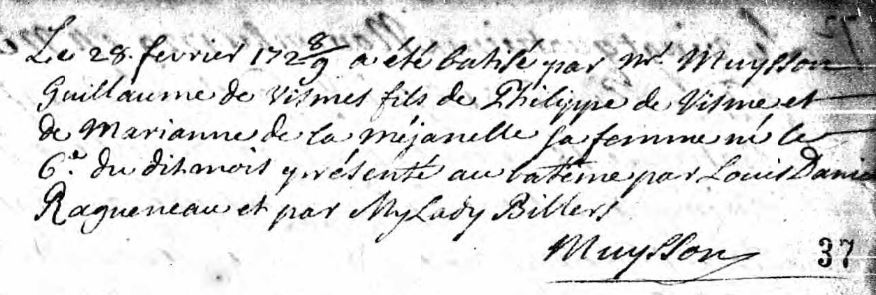 Le 28. fevrier 172 8/9 a été batisé par Mr. Muysson
Guillaume de Vismes fils de Philippe de Visme et
de Marianne de la Méjanelle sa femme né le
6.e du dit mois présenté au batême par Louis Daniel
Ragueneau et par My Lady Billers
Muysson
37